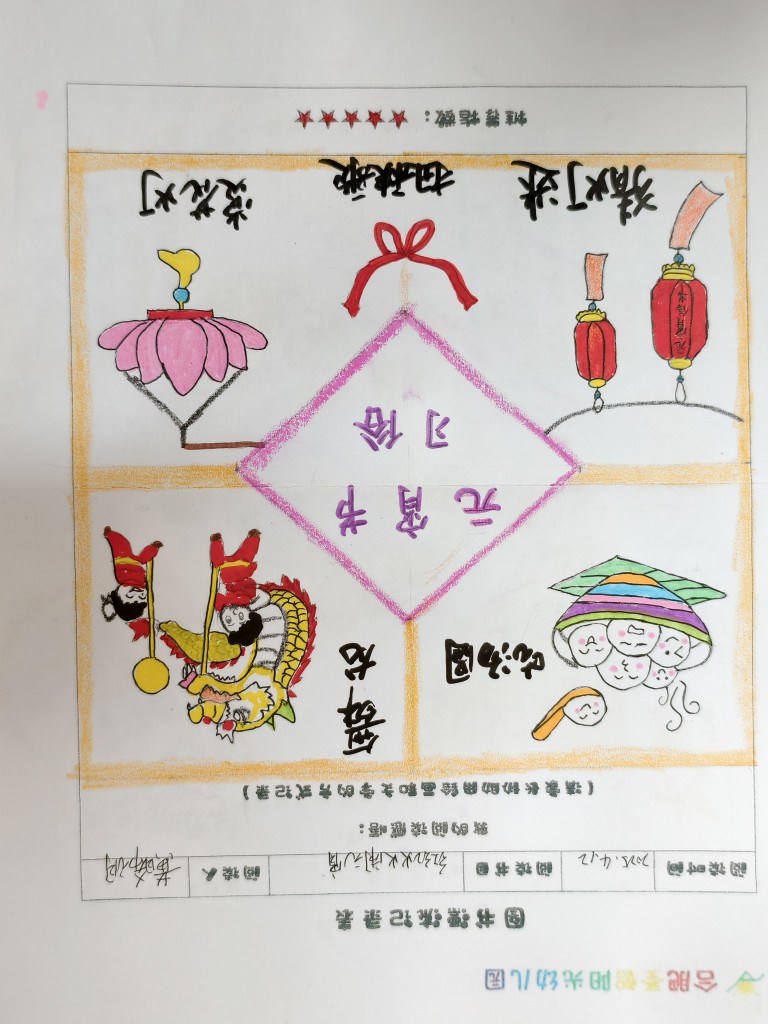 合肥圣智阳光幼儿园
图书漂流记录表
阅读时间 2025.4.12 阅读书目 红红火火闹元宵 阅读人
我的阅读感悟：
（请家长协助用绘画和文字的方式记录）
吃汤圆 舞龙
元宵节
习俗
元宵佳节
猜灯迷 扭秧歌 赏花灯
推荐指数：★★★★★